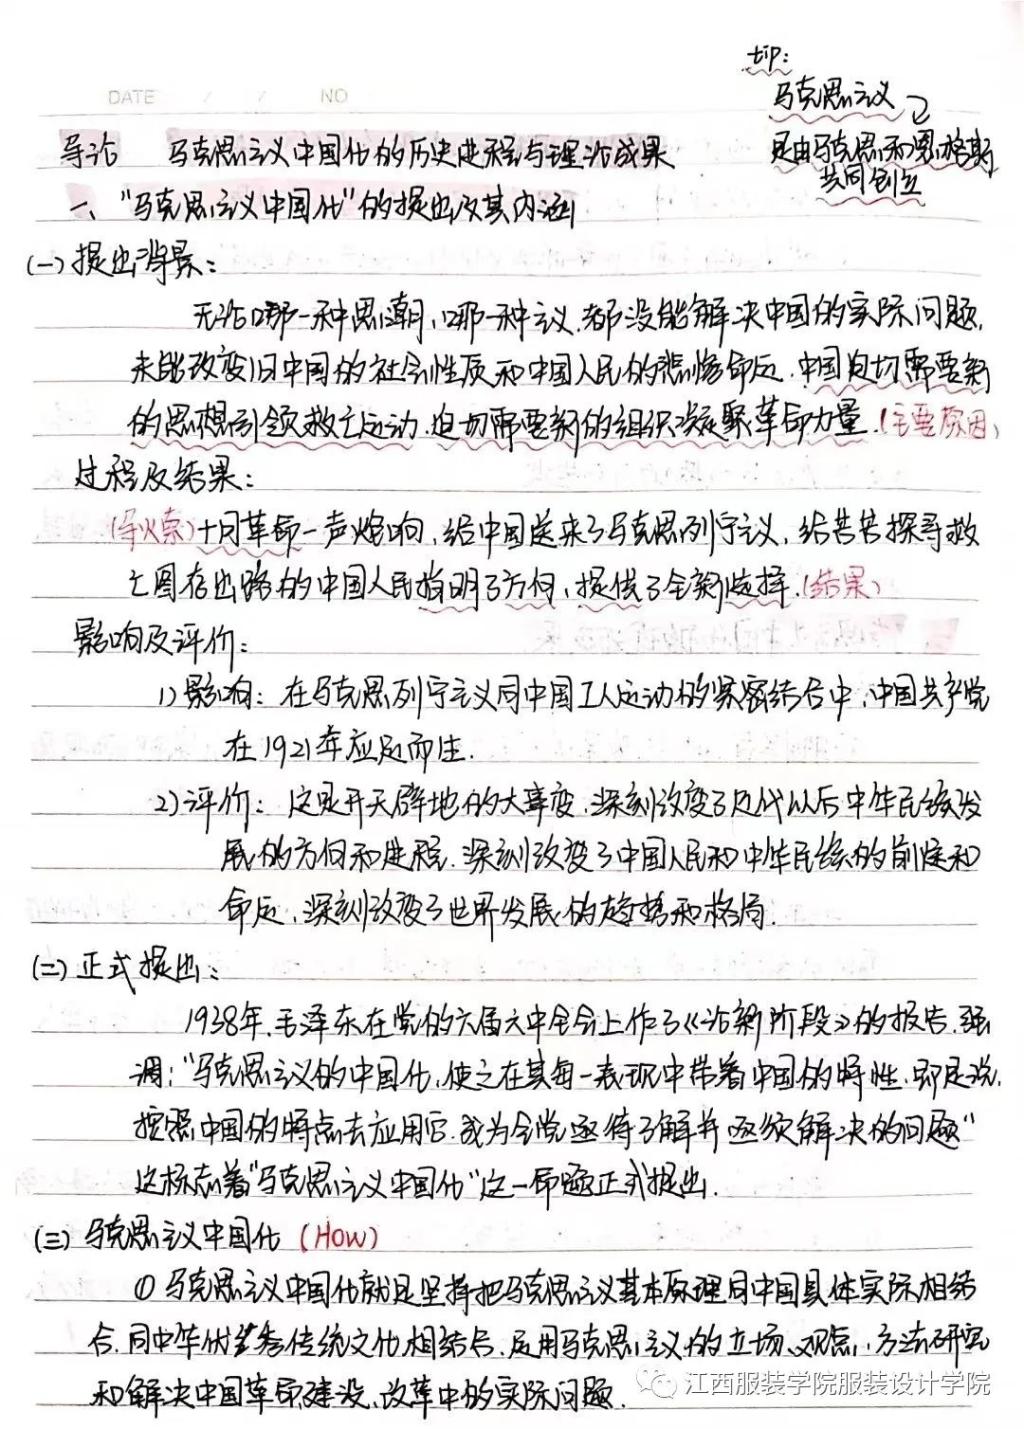 tip:
DATE / / NO
马克思主义
导论 马克思主义中国化的历史进程与理论成果
是由马克思和恩格斯
共同创立
一、"马克思主义中国化"的提出及其内涵
(一)提出背景:
无论哪一种思潮,哪一种主义,都没能解决中国的实际问题,
未能改变旧中国的社会性质和中国人民的悲惨命运.中国迫切需要新
的思想引领救亡运动,迫切需要新的组织凝聚革命力量.(主要原因)
过程及结果:
(导火索)十月革命一声炮响,给中国送来了马克思列宁主义,给苦苦探寻救
亡图存出路的中国人民指明了方向,提供了全新选择.(结果)
影响及评价:
1)影响:在马克思列宁主义同中国工人运动的紧密结合中,中国共产党
在1921年应运而生.
2)评价:这是开天辟地的大事变.深刻改变了近代以后中华民族发
展的方向和进程.深刻改变了中国人民和中华民族的前途和
命运,深刻改变了世界发展的趋势和格局.
(二)正式提出:
1938年,毛泽东在党的六届六中全会上作了《论新阶段》的报告.强
调:"马克思主义的中国化,使之在其每一表现中带着中国的特性,即是说,
按照中国的特点去应用它.成为全党亟待了解并亟须解决的问题"
这标志着"马克思主义中国化"这一命题正式提出.
(三)马克思主义中国化(How)
①马克思主义中国化就是坚持把马克思主义基本原理同中国具体实际相结
合.同中华优秀传统文化相结合.是用马克思主义的立场、观点,方法研究
和解决中国革命,建设,改革中的实际问题.
江西服装学院服装设计学院